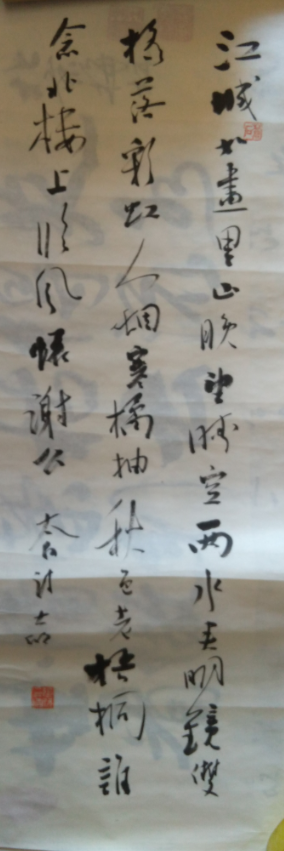 江城如畫里山晚望晴空兩水夾明鏡雙
橋落彩虹人烟寒橘柚秋色老梧桐誰
念北樓上臨風懷謝公